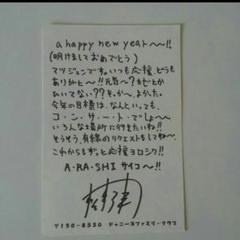 a happy new year〜!!
(明けましておめでとう)
マツジュンです。いつも応援、どうも
ありがと〜!! 元気〜？カゼとか
ひいてない??そっか〜、よかった。
今年の目標は、なんといっても、
コ・ン・サ・ー・ト・でしょ〜
いろんな場所に行きたいね!!
そうそう、有線のリクエストもしてね〜
これからもずっと応援ヨロシク!!
A・RA・SHI サイコ〜!!
〒150-8550 ジャニーズファミリークラブ